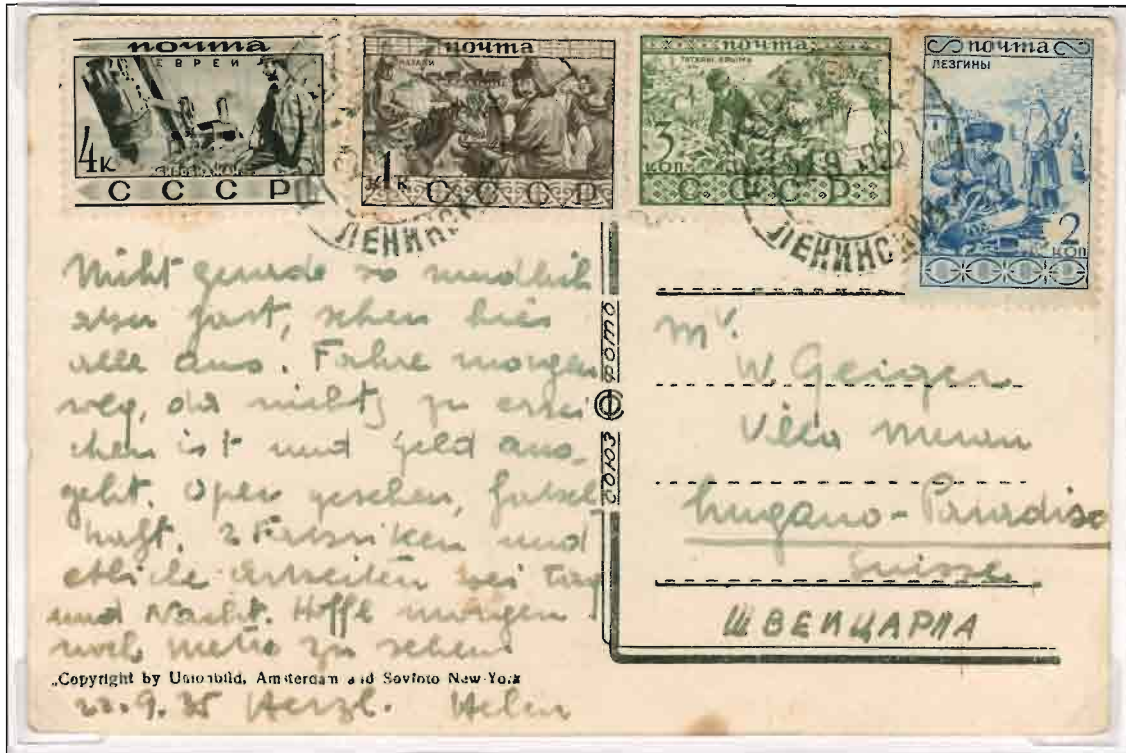 почта
ЕВРЕИ
4к
СССР
почта
1к
СССР
почта
ТАТАРЫ КРЫМА
3 КОП
СССР
почта
ЛЕЗГИНЫ
2 КОП
СССР
ЛЕНИНСК
ЛЕНИНС
Nicht gerade so
aber fast, sehen hier
alle aus. Fahre morgen
weg, da nichts zu errei
chen ist und Geld aus-
geht. Oper gesehen, fabel
haft. 2 Fabriken und
etliche Arbeiten bei Tag
und Nacht. Hoffe morgen
noch Metro zu sehen
„Copyright by Unionbild, Amsterdam and Sovfoto New-York
22.9.35 Herzl. Helen
СОЮЗ © ФОТО
Mr.
W. Geiger
Villa Meran
Lugano-Paradiso
Suisse.
ШВЕЙЦАРИЯ